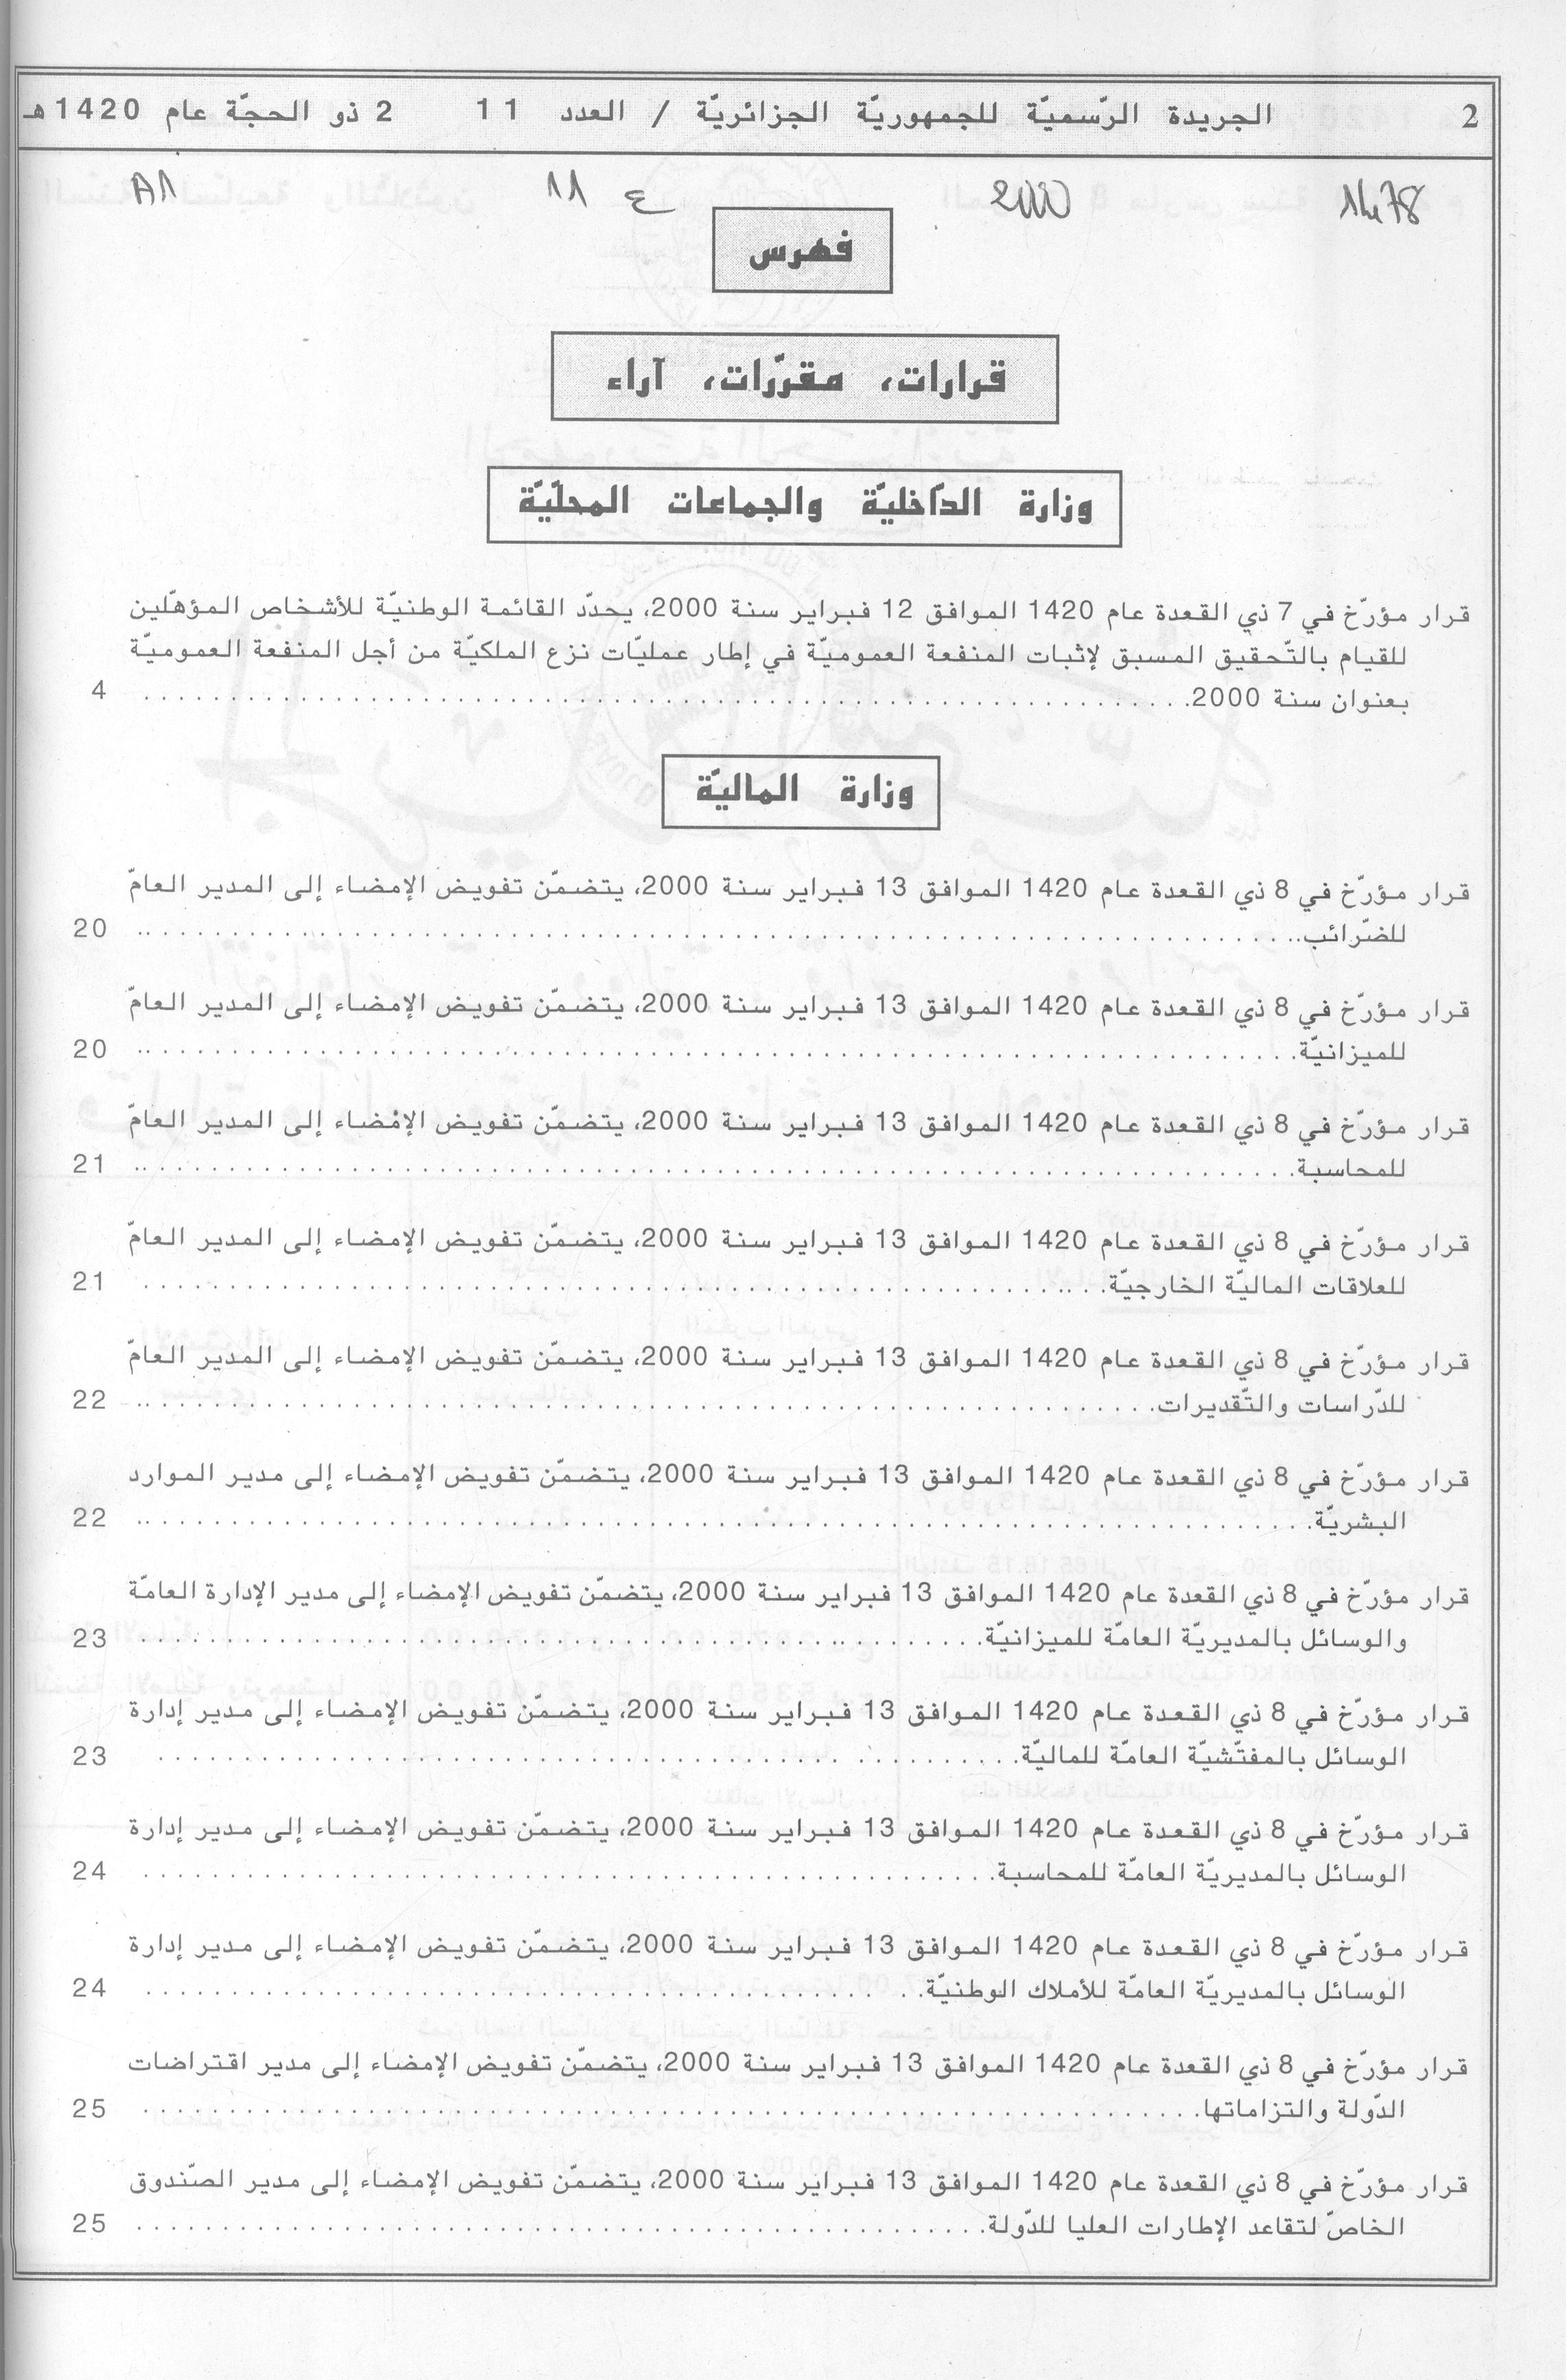 2 الجريدة الرّسميّة للجمهوريّة الجزائريّة / العدد 11 2 ذو الحجّة عام 1420 هـ
1478 2000 ع 11 A1
فهرس
قرارات، مقرّرات، آراء
وزارة الدّاخليّة والجماعات المحليّة
قرار مؤرّخ في 7 ذي القعدة عام 1420 الموافق 12 فبراير سنة 2000، يحدّد القائمة الوطنيّة للأشخاص المؤهّلين
للقيام بالتّحقيق المسبق لإثبات المنفعة العموميّة في إطار عمليّات نزع الملكيّة من أجل المنفعة العموميّة
بعنوان سنة 2000. . . . . . . . . . 4
وزارة الماليّة
قرار مؤرّخ في 8 ذي القعدة عام 1420 الموافق 13 فبراير سنة 2000، يتضمّن تفويض الإمضاء إلى المدير العامّ
للضّرائب. . . . . . . . . . 20
قرار مؤرّخ في 8 ذي القعدة عام 1420 الموافق 13 فبراير سنة 2000، يتضمّن تفويض الإمضاء إلى المدير العامّ
للميزانيّة. . . . . . . . . . 20
قرار مؤرّخ في 8 ذي القعدة عام 1420 الموافق 13 فبراير سنة 2000، يتضمّن تفويض الإمضاء إلى المدير العامّ
للمحاسبة. . . . . . . . . . 21
قرار مؤرّخ في 8 ذي القعدة عام 1420 الموافق 13 فبراير سنة 2000، يتضمّن تفويض الإمضاء إلى المدير العامّ
للعلاقات الماليّة الخارجيّة. . . . . . . . . . 21
قرار مؤرّخ في 8 ذي القعدة عام 1420 الموافق 13 فبراير سنة 2000، يتضمّن تفويض الإمضاء إلى المدير العامّ
للدّراسات والتّقديرات. . . . . . . . . . 22
قرار مؤرّخ في 8 ذي القعدة عام 1420 الموافق 13 فبراير سنة 2000، يتضمّن تفويض الإمضاء إلى مدير الموارد
البشريّة. . . . . . . . . . 22
قرار مؤرّخ في 8 ذي القعدة عام 1420 الموافق 13 فبراير سنة 2000، يتضمّن تفويض الإمضاء إلى مدير الإدارة العامّة
والوسائل بالمديريّة العامّة للميزانيّة. . . . . . . . . . 23
قرار مؤرّخ في 8 ذي القعدة عام 1420 الموافق 13 فبراير سنة 2000، يتضمّن تفويض الإمضاء إلى مدير إدارة
الوسائل بالمفتّشيّة العامّة للماليّة. . . . . . . . . . 23
قرار مؤرّخ في 8 ذي القعدة عام 1420 الموافق 13 فبراير سنة 2000، يتضمّن تفويض الإمضاء إلى مدير إدارة
الوسائل بالمديريّة العامّة للمحاسبة. . . . . . . . . . 24
قرار مؤرّخ في 8 ذي القعدة عام 1420 الموافق 13 فبراير سنة 2000، يتضمّن تفويض الإمضاء إلى مدير إدارة
الوسائل بالمديريّة العامّة للأملاك الوطنيّة. . . . . . . . . . 24
قرار مؤرّخ في 8 ذي القعدة عام 1420 الموافق 13 فبراير سنة 2000، يتضمّن تفويض الإمضاء إلى مدير اقتراضات
الدّولة والتزاماتها. . . . . . . . . . 25
قرار مؤرّخ في 8 ذي القعدة عام 1420 الموافق 13 فبراير سنة 2000، يتضمّن تفويض الإمضاء إلى مدير الصّندوق
الخاصّ لتقاعد الإطارات العليا للدّولة. . . . . . . . . . 25